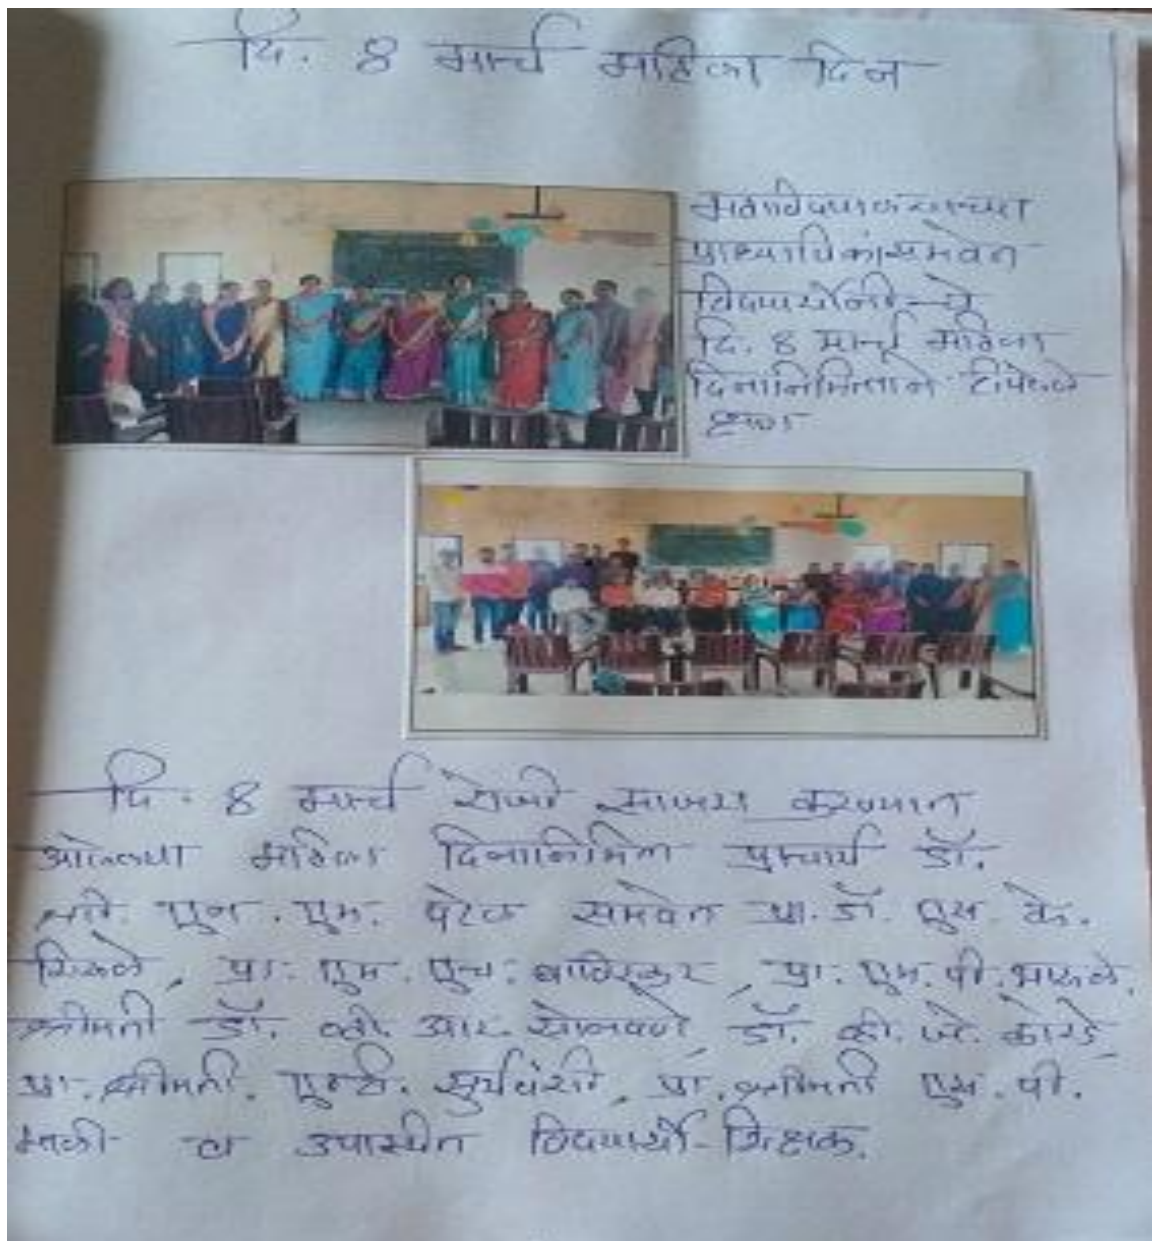 दि. 8 मार्च महिला दिन
महाविद्यालयाच्या
प्राध्यापिकांसमवेत
विद्यार्थीनींचे
दि. 8 मार्च महिला
दिनानिमित्ताने टिपलेले
दि. 8 मार्च रोजी साजरा करण्यात
आलेल्या महिला दिनानिमित्त प्राचार्य डॉ.
एन. एम. पटेल समवेत प्रा. डॉ. एस. के.
प्रा. एम. एच. बाविस्कर, प्रा. एम. पी.
श्रीमती डॉ. व्ही. आर. सोनवणे, डॉ. व्ही. जे.
प्रा. श्रीमती. सुर्यवंशी, प्रा. श्रीमती एस. पी.
व उपास्थीत विद्यार्थी-शिक्षक.